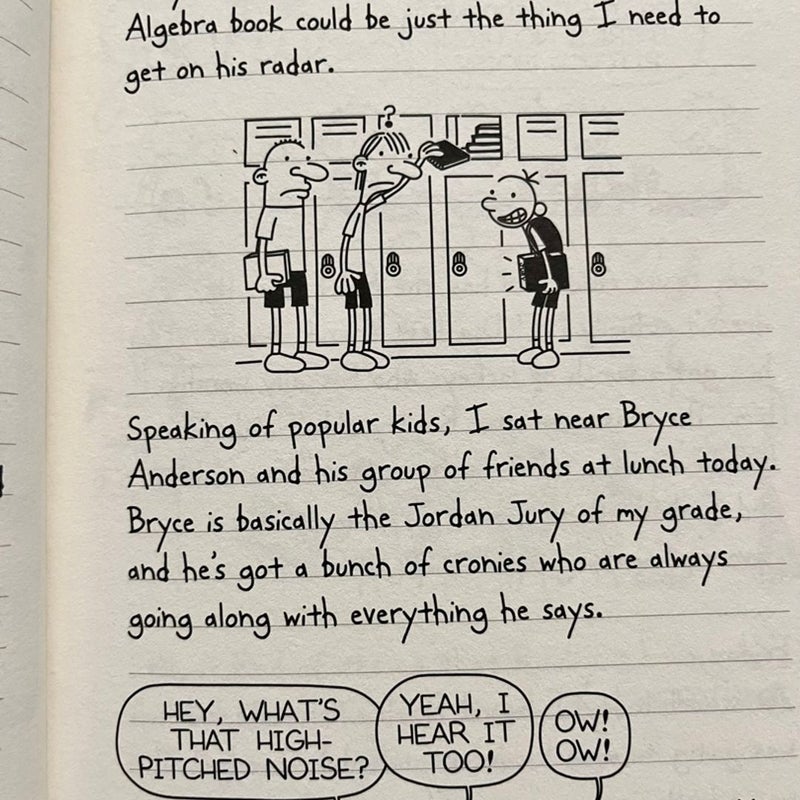 Algebra book could be just the thing I need to
get on his radar.
?
Speaking of popular kids, I sat near Bryce
Anderson and his group of friends at lunch today.
Bryce is basically the Jordan Jury of my grade,
and he's got a bunch of cronies who are always
going along with everything he says.
HEY, WHAT'S
THAT HIGH-
PITCHED NOISE?
YEAH, I
HEAR IT
TOO!
OW!
OW!